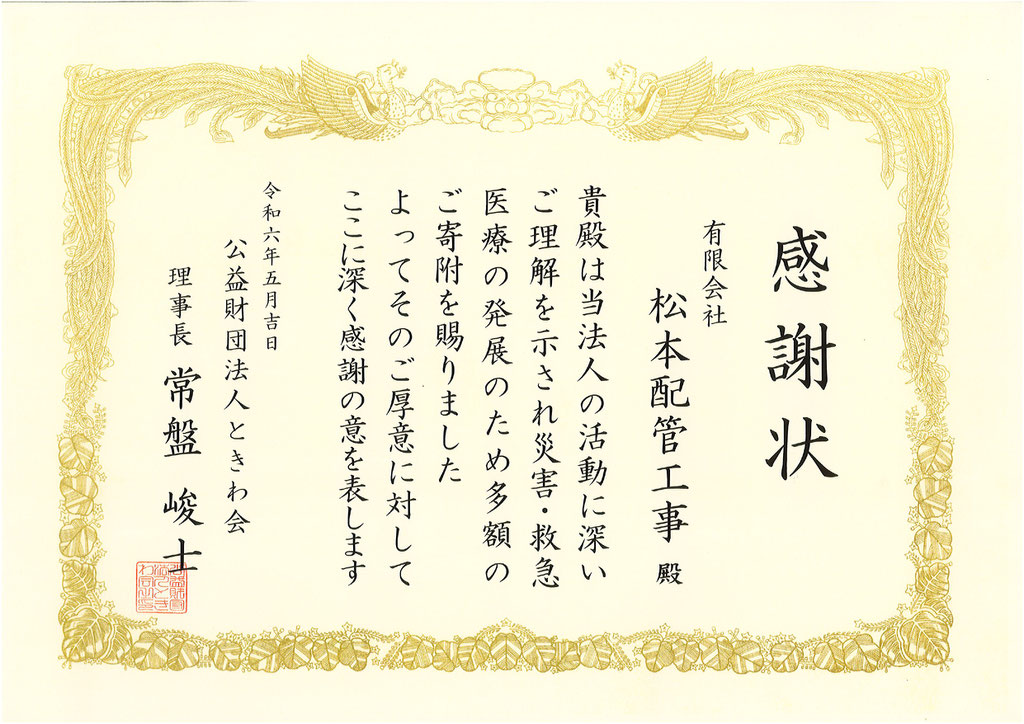 感謝状
有限会社
松本配管工事 殿
貴殿は当法人の活動に深い
ご理解を示され災害・救急
医療の発展のため多額の
ご寄附を賜りました
よってそのご厚意に対して
ここに深く感謝の意を表します
令和六年五月吉日
公益財団法人ときわ会
理事長 常盤 峻士